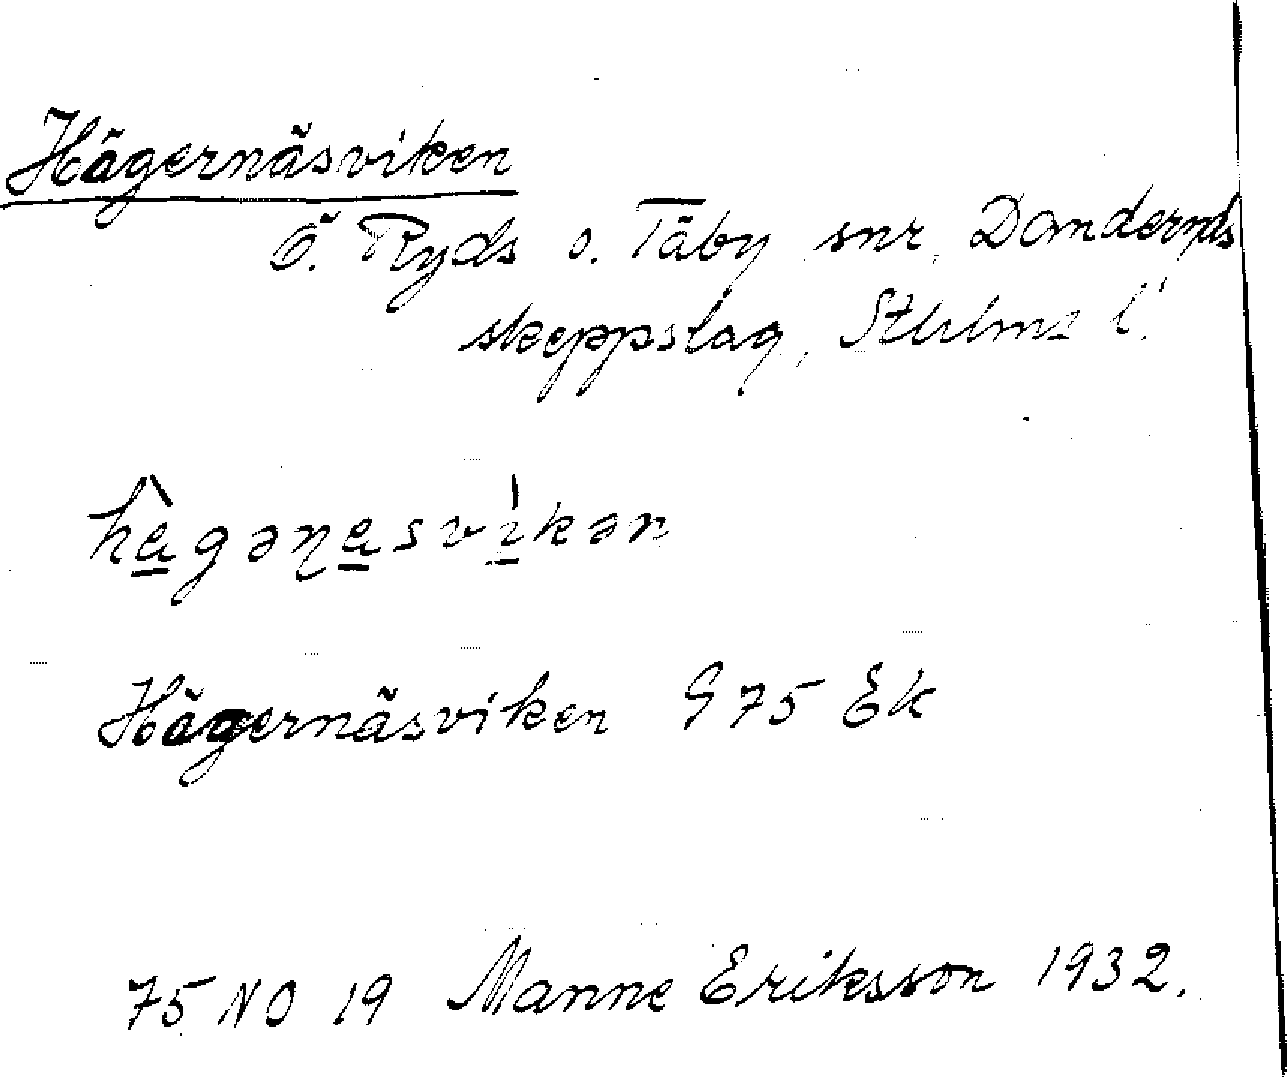 Hägernäsviken
Ö. Ryds o. Täby snr, Danderyds
skeppslag, Sthlms l.
hàgəɳasvíkən
Hägernäsviken G 75 Ek
75 NO 19 Manne Eriksson 1932.